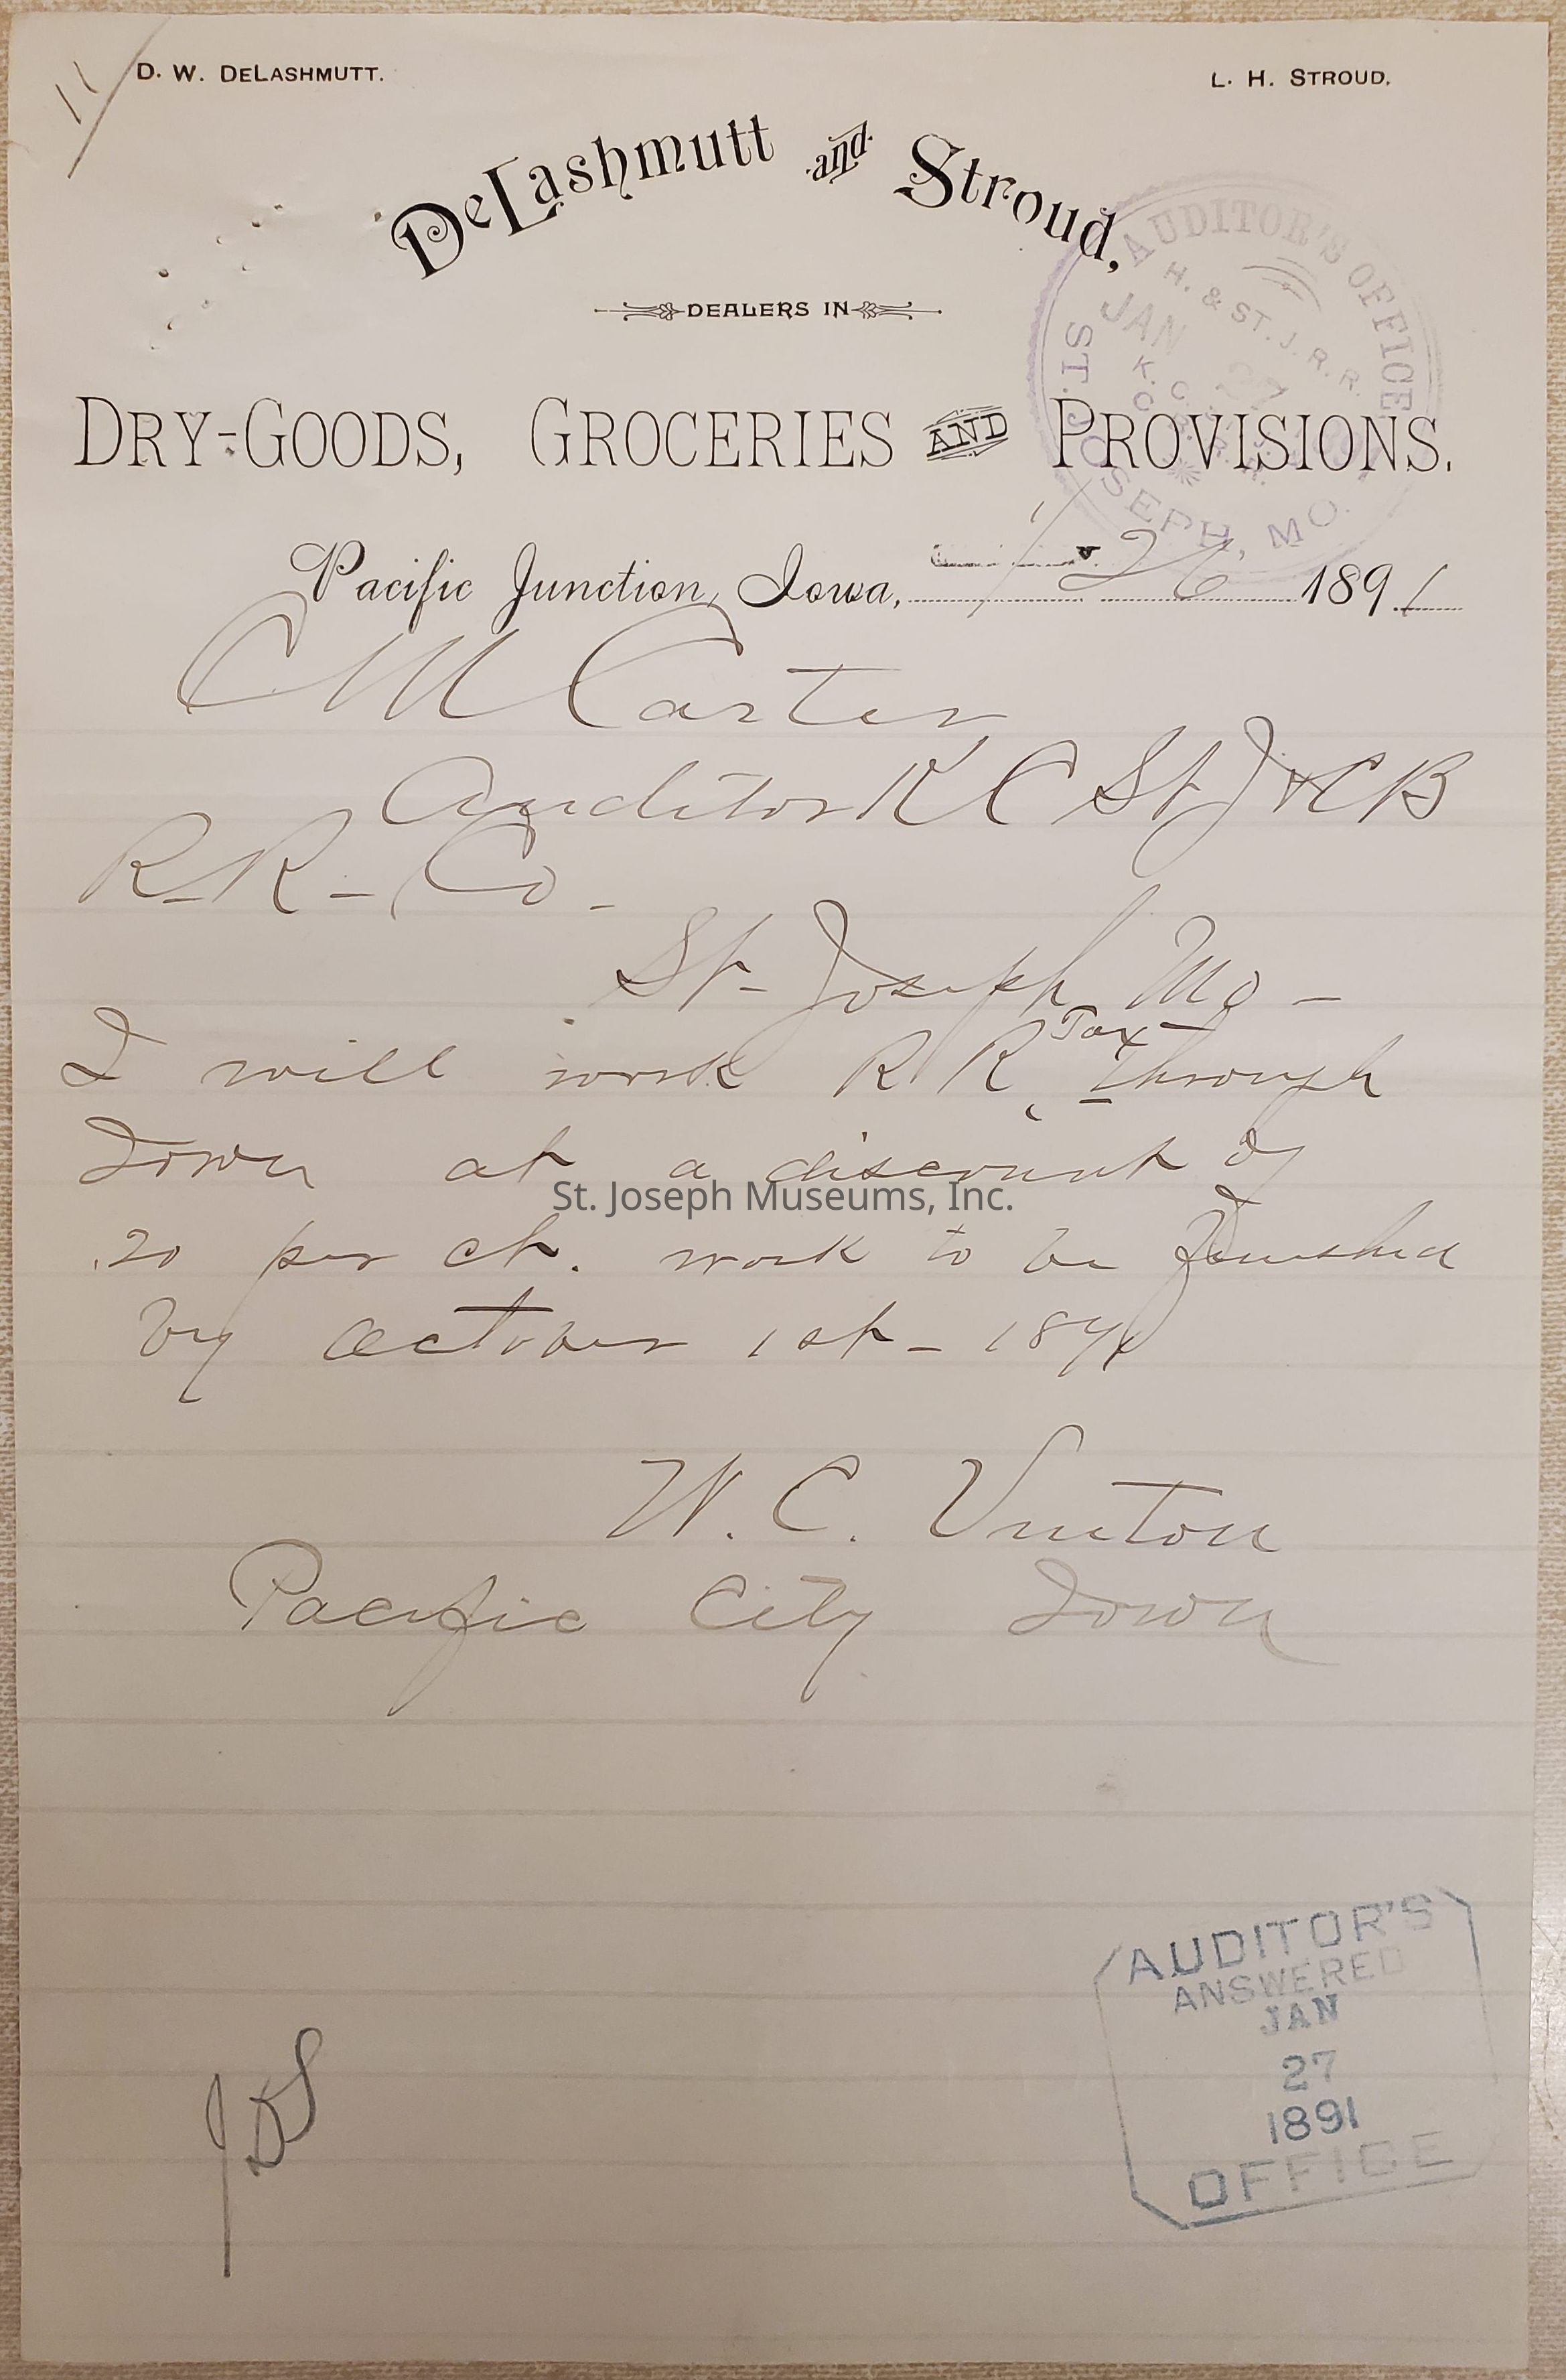 11
D. W. DELASHMUTT.
L. H. STROUD.
DeLashmutt and Stroud,
DEALERS IN
DRY-GOODS, GROCERIES AND PROVISIONS.
Pacific Junction, Iowa, 1/26 1891
AUDITOR'S OFFICE
H. & ST. J. R. R.
JAN 27
K. C.
ST. JOSEPH, MO.
C M Carter
Auditor K C St J & C B
R R - Co -
St - Joseph Mo -
Tax
I will work R R through
Iowa at a discount of
.20 per ct. work to be finished
by October 1st - 1891
W. C. Vinton
Pacific City Iowa
St. Joseph Museums, Inc.
JDS
AUDITOR'S
ANSWERED
JAN
27
1891
OFFICE